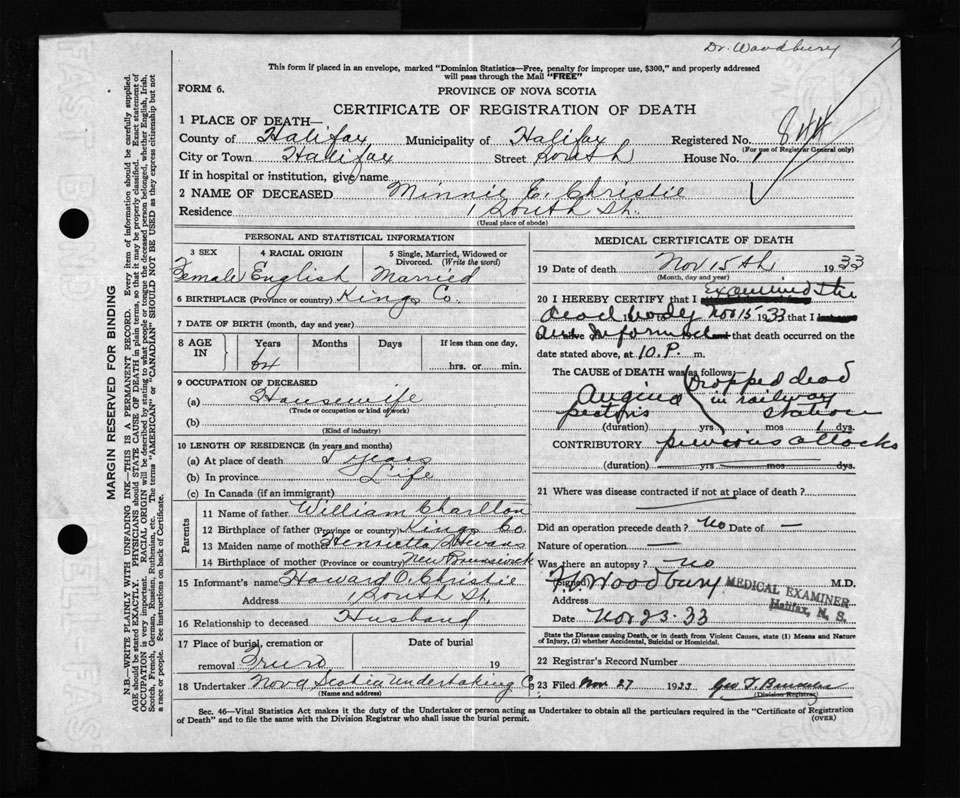 Dr. Woodbury
This form if placed in an envelope, marked "Dominion Statistics—Free, penalty for improper use, $300," and properly addressed
will pass through the Mail "FREE"
FORM 6.
PROVINCE OF NOVA SCOTIA
CERTIFICATE OF REGISTRATION OF DEATH
1 PLACE OF DEATH—
County of Halifax Municipality of Halifax Registered No. 844
(For use of Registrar General only)
City or Town Halifax Street South House No. 1
If in hospital or institution, give name
2 NAME OF DECEASED Minnie E. Christie
Residence 1 South St.
(Usual place of abode)
PERSONAL AND STATISTICAL INFORMATION
3 SEX 4 RACIAL ORIGIN 5 Single, Married, Widowed or Divorced. (Write the word)
Female English Married
6 BIRTHPLACE (Province or country) Kings Co.
7 DATE OF BIRTH (month, day and year)
8 AGE IN Years Months Days If less than one day,
64 hrs. or min.
9 OCCUPATION OF DECEASED
(a) Housewife
(Trade or occupation or kind of work)
(b)
(Kind of industry)
10 LENGTH OF RESIDENCE (in years and months)
(a) At place of death 5 years
(b) In province Life
(c) In Canada (if an immigrant)
Parents
11 Name of father William Charlton
12 Birthplace of father (Province or country) Kings Co.
13 Maiden name of mother Henrietta
14 Birthplace of mother (Province or country) New Brunswick
15 Informant's name Howard O. Christie
Address 1 South St.
16 Relationship to deceased Husband
17 Place of burial, cremation or Date of burial
removal Truro 19
18 Undertaker Nova Scotia Undertaking Co
(Name and address)
MEDICAL CERTIFICATE OF DEATH
19 Date of death Nov 15th 1933
(Month, day and year)
20 I HEREBY CERTIFY that I examined the
dead body Nov 15 1933 that I
am informed that death occurred on the
date stated above, at 10. P. m.
The CAUSE of DEATH was as follows:
Angina pectoris Dropped dead in railway station
(duration) yrs mos dys.
CONTRIBUTORY previous attacks
(duration) yrs mos dys.
21 Where was disease contracted if not at place of death?
Did an operation precede death? No Date of —
Nature of operation —
Was there an autopsy? No
Signed Woodbury M.D.
MEDICAL EXAMINER
Halifax, N. S.
Address
Date Nov 23. 33
State the Disease causing Death, or in death from Violent Causes, state (1) Means and Nature
of Injury, (2) whether Accidental, Suicidal or Homicidal.
22 Registrar's Record Number
23 Filed Nov 27 1933 Geo T.
(Division Registrar)
Sec. 46—Vital Statistics Act makes it the duty of the Undertaker or person acting as Undertaker to obtain all the particulars required in the "Certificate of Registration
of Death" and to file the same with the Division Registrar who shall issue the burial permit.
(OVER)
MARGIN RESERVED FOR BINDING
N.B.—WRITE PLAINLY WITH UNFADING INK—THIS IS A PERMANENT RECORD. Every item of information should be carefully supplied.
AGE should be stated EXACTLY. PHYSICIANS should STATE CAUSE OF DEATH in plain terms, so that it may be properly classified. Exact statement of
OCCUPATION is very important. RACIAL ORIGIN will be described by stating what people or tongue the deceased person belonged, whether English, Irish,
Scotch, French, German, Russian, Ruthenian, etc. The terms "AMERICAN" or "CANADIAN" SHOULD NOT BE USED as they express citizenship but not
a race or people. See instructions on back of Certificate.